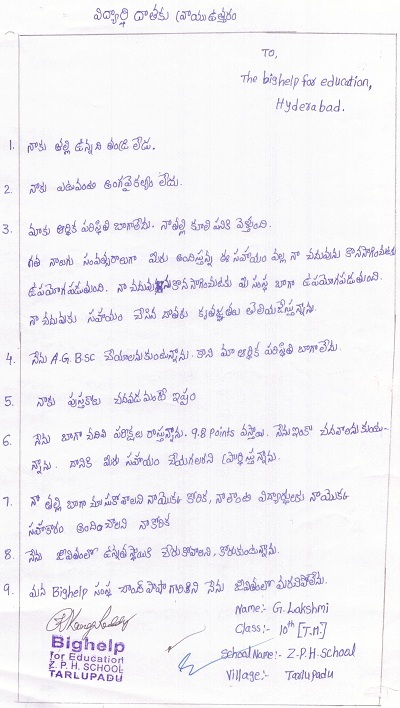 విద్యార్థి దాతకు వ్రాయు ఉత్తరం
To,
The bighelp for education,
Hyderabad.
1. నాకు తల్లి ఉన్నది తండ్రి లేడు.
2. నాకు ఎటువంటి అంగవైకల్యం లేదు.
3. మాకు ఆర్థిక పరిస్థితి బాగాలేదు. నాతల్లి కూలి పనికి వెళ్తుంది.
గత నాలుగు సంవత్సరాలుగా మీరు అందిస్తున్న ఈ సహాయం వల్ల నా చదువును కొనసాగించుటకు
ఉపయోగపడుతుంది. నా చదువును కొనసాగించుటకు మీ సంస్థ బాగా ఉపయోగపడుతుంది.
నా చదువుకు సహాయం చేసిన దాతకు కృతజ్ఞతలు తెలియచేస్తున్నాను.
4. నేను A.G. B.sc చేయాలనుకుంటున్నాను. కాని మా ఆర్థిక పరిస్థితి బాగాలేదు.
5. నాకు పుస్తకాలు చదవడమంటే ఇష్టం
6. నేను బాగా చదివి పరీక్షలు రాస్తున్నాను. 9.8 Points వస్తాయి. నేను ఇంకా చదవాలనుకుంటు-
న్నాను. దానికి మీరు సహాయం చేయగలరని ప్రార్థిస్తున్నాను.
7. నా తల్లి బాగా చూసుకోవాలని నాయొక్క కోరిక, నాలాంటి విద్యార్థులకు నాయొక్క
సహాకారం అందించాలని నా కోరిక
8. నేను జీవితంలో ఉన్నతస్థాయికి చేరుకోవాలని, కోరుకుంటున్నాను.
9. మన Bighelp సంస్థ చాంద్ పాషా గారిని నేను జీవితంలో మరచిపోలేను.
Name:- G. Lakshmi
Class:- 10th [T.M.]
School Name:- Z.P.H.School
Village:- Tarlupadu
Bighelp
for Education
Z. P. H. SCHOOL
TARLUPADU